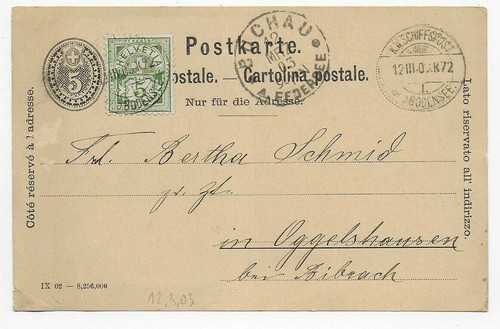 Postkarte.
Carte postale. — Cartolina postale.
Nur für die Adresse.
Côté réservé à l'adresse.
Lato riservato all' indirizzo.
5
HELVETIA
BODENSEE
BUCHAU
12
MRZ
03
A. FEDERSEE
K.W. SCHIFFSPOST
12 III 0 3. K72
I
a. d. BODENSEE.
Frl. Bertha Schmid
pr. Ad.
in Oggelshausen
bei Bibrach
IX 02 — 8,256,000
12.3.03